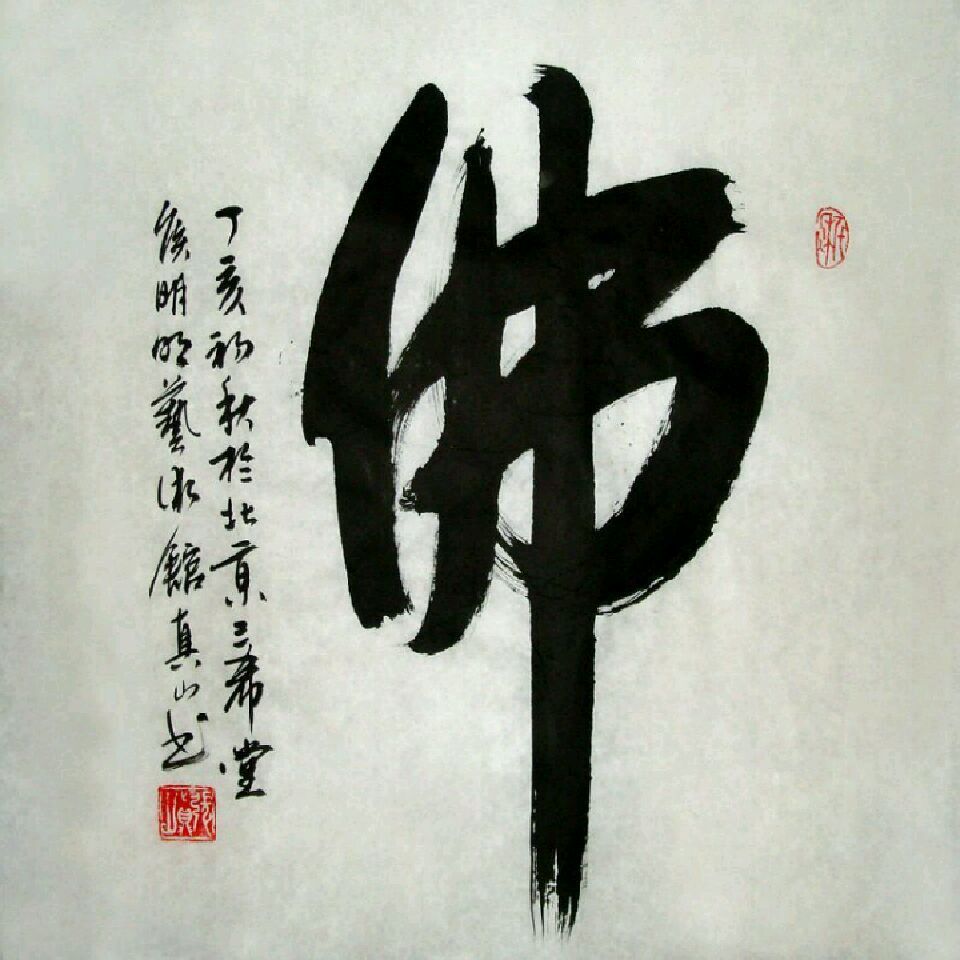 佛
丁亥初秋於北京三希堂
侯明明藝術館真山书